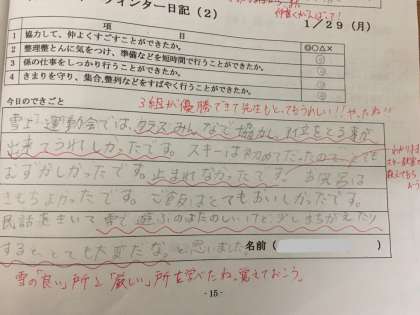 ウィンター日記(2)
1/29(月)
項 目
◎○△×
1 協力して、仲よくすごすことができたか。
2 整理整とんに気をつけ、準備などを短時間で行うことができたか。
3 係の仕事をしっかり行うことができたか。
4 きまりを守り、集合、整列などをすばやく行うことができたか。
今日のできごと
3組が優勝できて先生もとってもうれしい!!やったね
雪上運動会では、クラスみんなで協力し、
出来てうれしかったです。スキーは初めてだったのでとても
むずかしかったです。止まれなかったです。お風呂は
きもちよかったです。ご飯はとてもおいしかったです。
民話をきいて雪で遊ぶのはたのしいけど少しまちがえたり
すると、とても大変だな。と思いました
名前( )
雪の「良い」所と「厳しい」所を学べたね。覚えておこう。
- 15 -